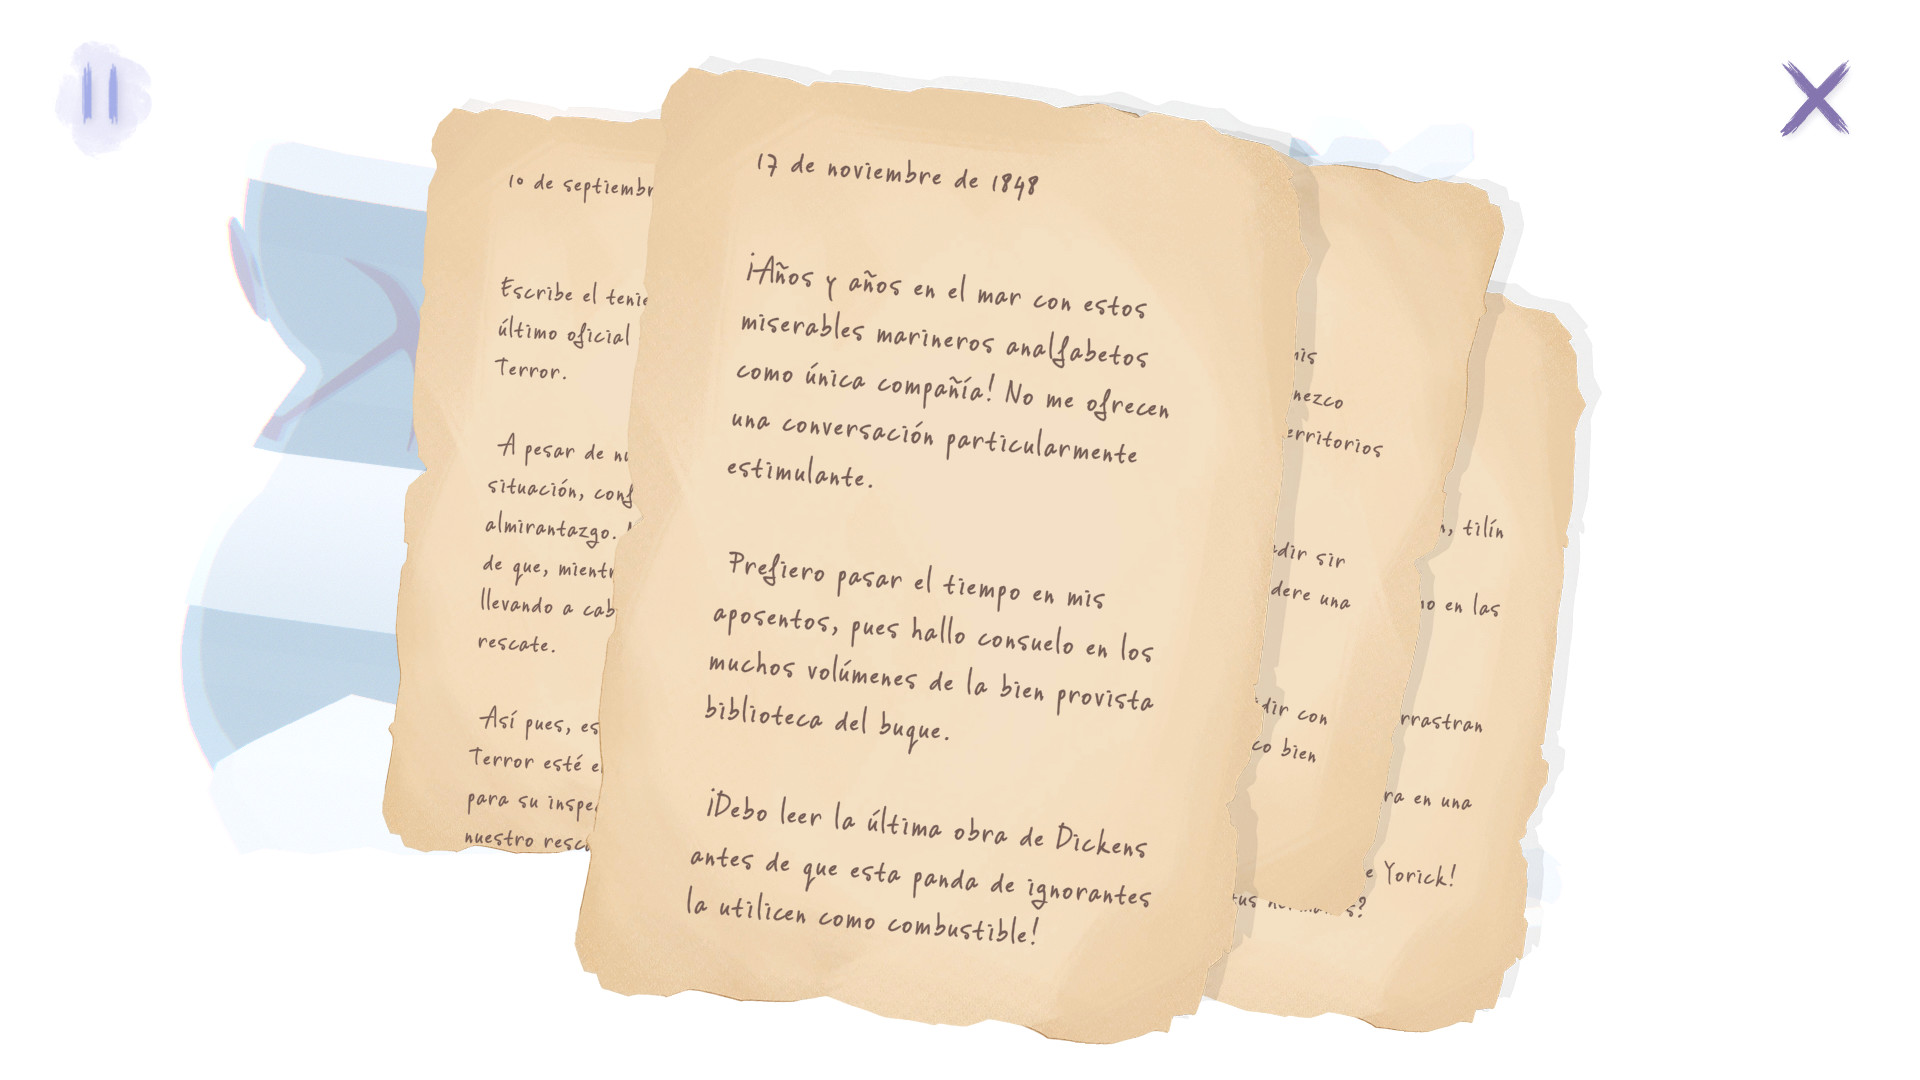 10 de septiembr
Escribe el tenie
último oficial
Terror.
A pesar de nu
situación, conf
almirantazgo.
de que, mientr
llevando a cab
rescate.
Así pues, es
Terror esté e
para su inspe
nuestro resc
17 de noviembre de 1848
¡Años y años en el mar con estos
miserables marineros analfabetos
como única compañía! No me ofrecen
una conversación particularmente
estimulante.
Prefiero pasar el tiempo en mis
aposentos, pues hallo consuelo en los
muchos volúmenes de la bien provista
biblioteca del buque.
¡Debo leer la última obra de Dickens
antes de que esta panda de ignorantes
la utilicen como combustible!
nis
nezco
erritorios
dir sir
dere una
dir con
co bien
, tilín
no en las
rrastran
ra en una
e Yorick!
tus